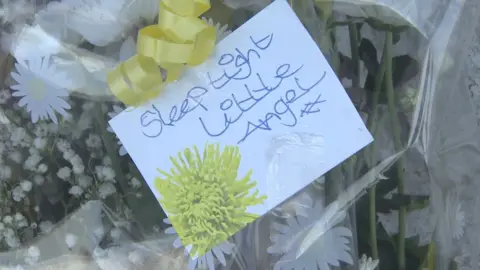 Sleep tight
Little
Angel x